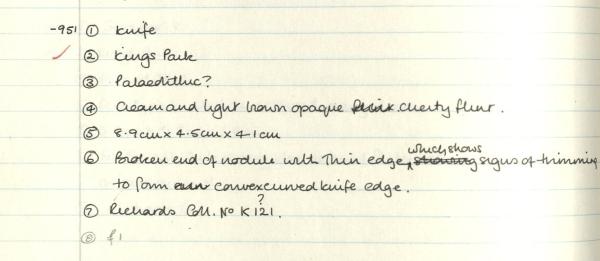 -951 ① Knife
② Kings Park
③ Palaeolithic?
④ Cream and light brown opaque cherty flint.
⑤ 8.9cm x 4.5cm x 4.1cm
⑥ Broken end of nodule with thin edge which shows signs of trimming
to form convex curved knife edge.
⑦ Richards Coll. No K121. ?
⑧ £1